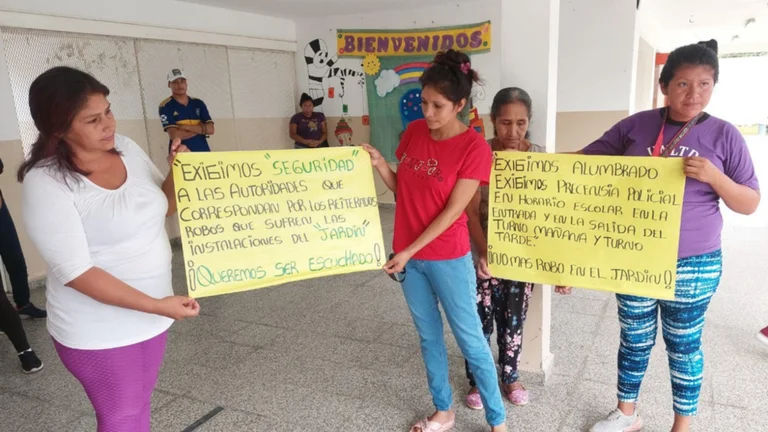 BIENVENIDOS
"EXIGIMOS "SEGURIDAD"
A LAS AUTORIDADES QUE
CORRESPONDAN POR LOS REITERADOS
ROBOS QUE SUFREN LAS
INSTALACIONES DEL "JARDIN"
¡QUEREMOS SER ESCUCHADO!
EXIGIMOS ALUMBRADO
EXIGIMOS PRECENSIA POLICIAL
EN HORARIO ESCOLAR EN LA
ENTRADA Y EN LA SALIDA DEL
TURNO MAÑANA Y TURNO
TARDE-
¡NO MAS ROBO EN EL JARDIN!